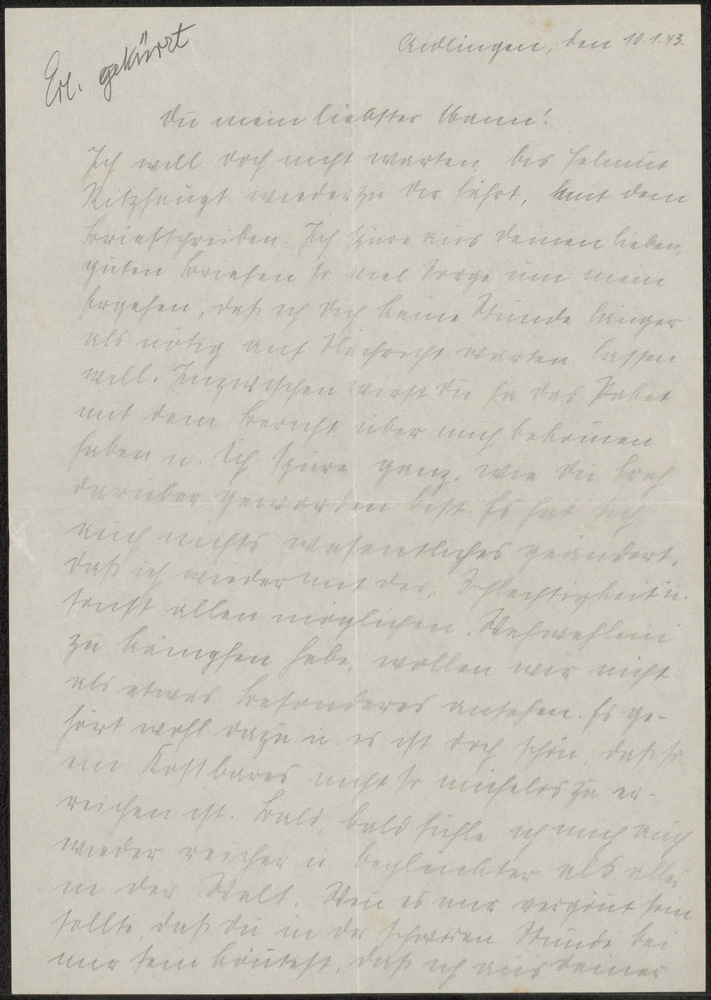 Erl. gekürzt
Aidlingen, den 10.1.43.
Du mein liebster Mann!
Ich will doch nicht warten bis Helmut
Kitzhaupt wieder zu Dir fährt, mit dem
Briefschreiben. Ich spüre aus Deinen lieben,
guten Briefen so viel Sorge um mein
Ergehen, daß ich Dich keine Stunde länger
als nötig auf Nachricht warten lassen
will. Inzwischen wirst Du ja das Paket
mit dem Bericht über mich bekommen
haben u. ich spüre ganz, wie Du froh
darüber geworden bist. Es hat sich
auch nichts wesentliches geändert.
Daß ich wieder mit der Schlechtigkeit u.
sonst allen möglichen Wehwehlein
zu kämpfen habe, wollen wir nicht
als etwas besonderes ansehen. Es ge-
hört wohl dazu u. es ist doch schön, daß so
ein Kostbares nicht so mühelos zu er-
reichen ist. Bald, bald fühle ich mich auch
wieder reicher u. beglückter als alles
in der Welt. Wenn es mir vergönnt sein
sollte, daß Du in der schweren Stunde bei
mir sein könntest, daß ich aus Deiner